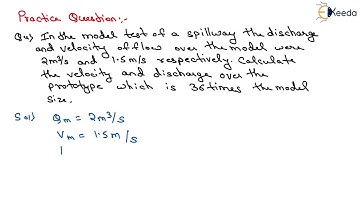 Practice Question:-
Ekeeda
Qu) In the model test of a spillway the discharge
and velocity of flow over the model were
2m³/s and 1.5 m/s respectively. Calculate
the velocity and discharge over the
prototype which is 36 times the model
size.
Sol) Qm = 2m³/s
Vm = 1.5 m/s